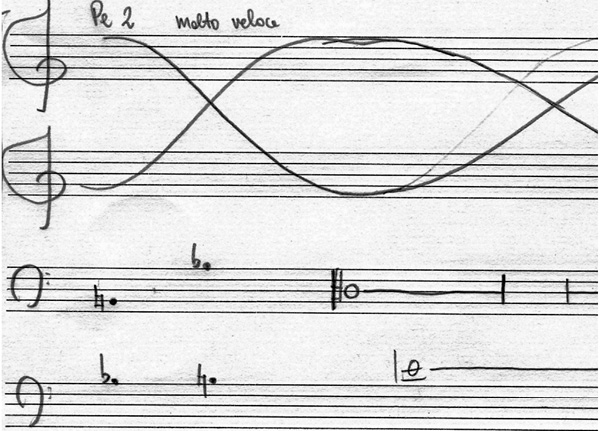 Pe 2 molto veloce